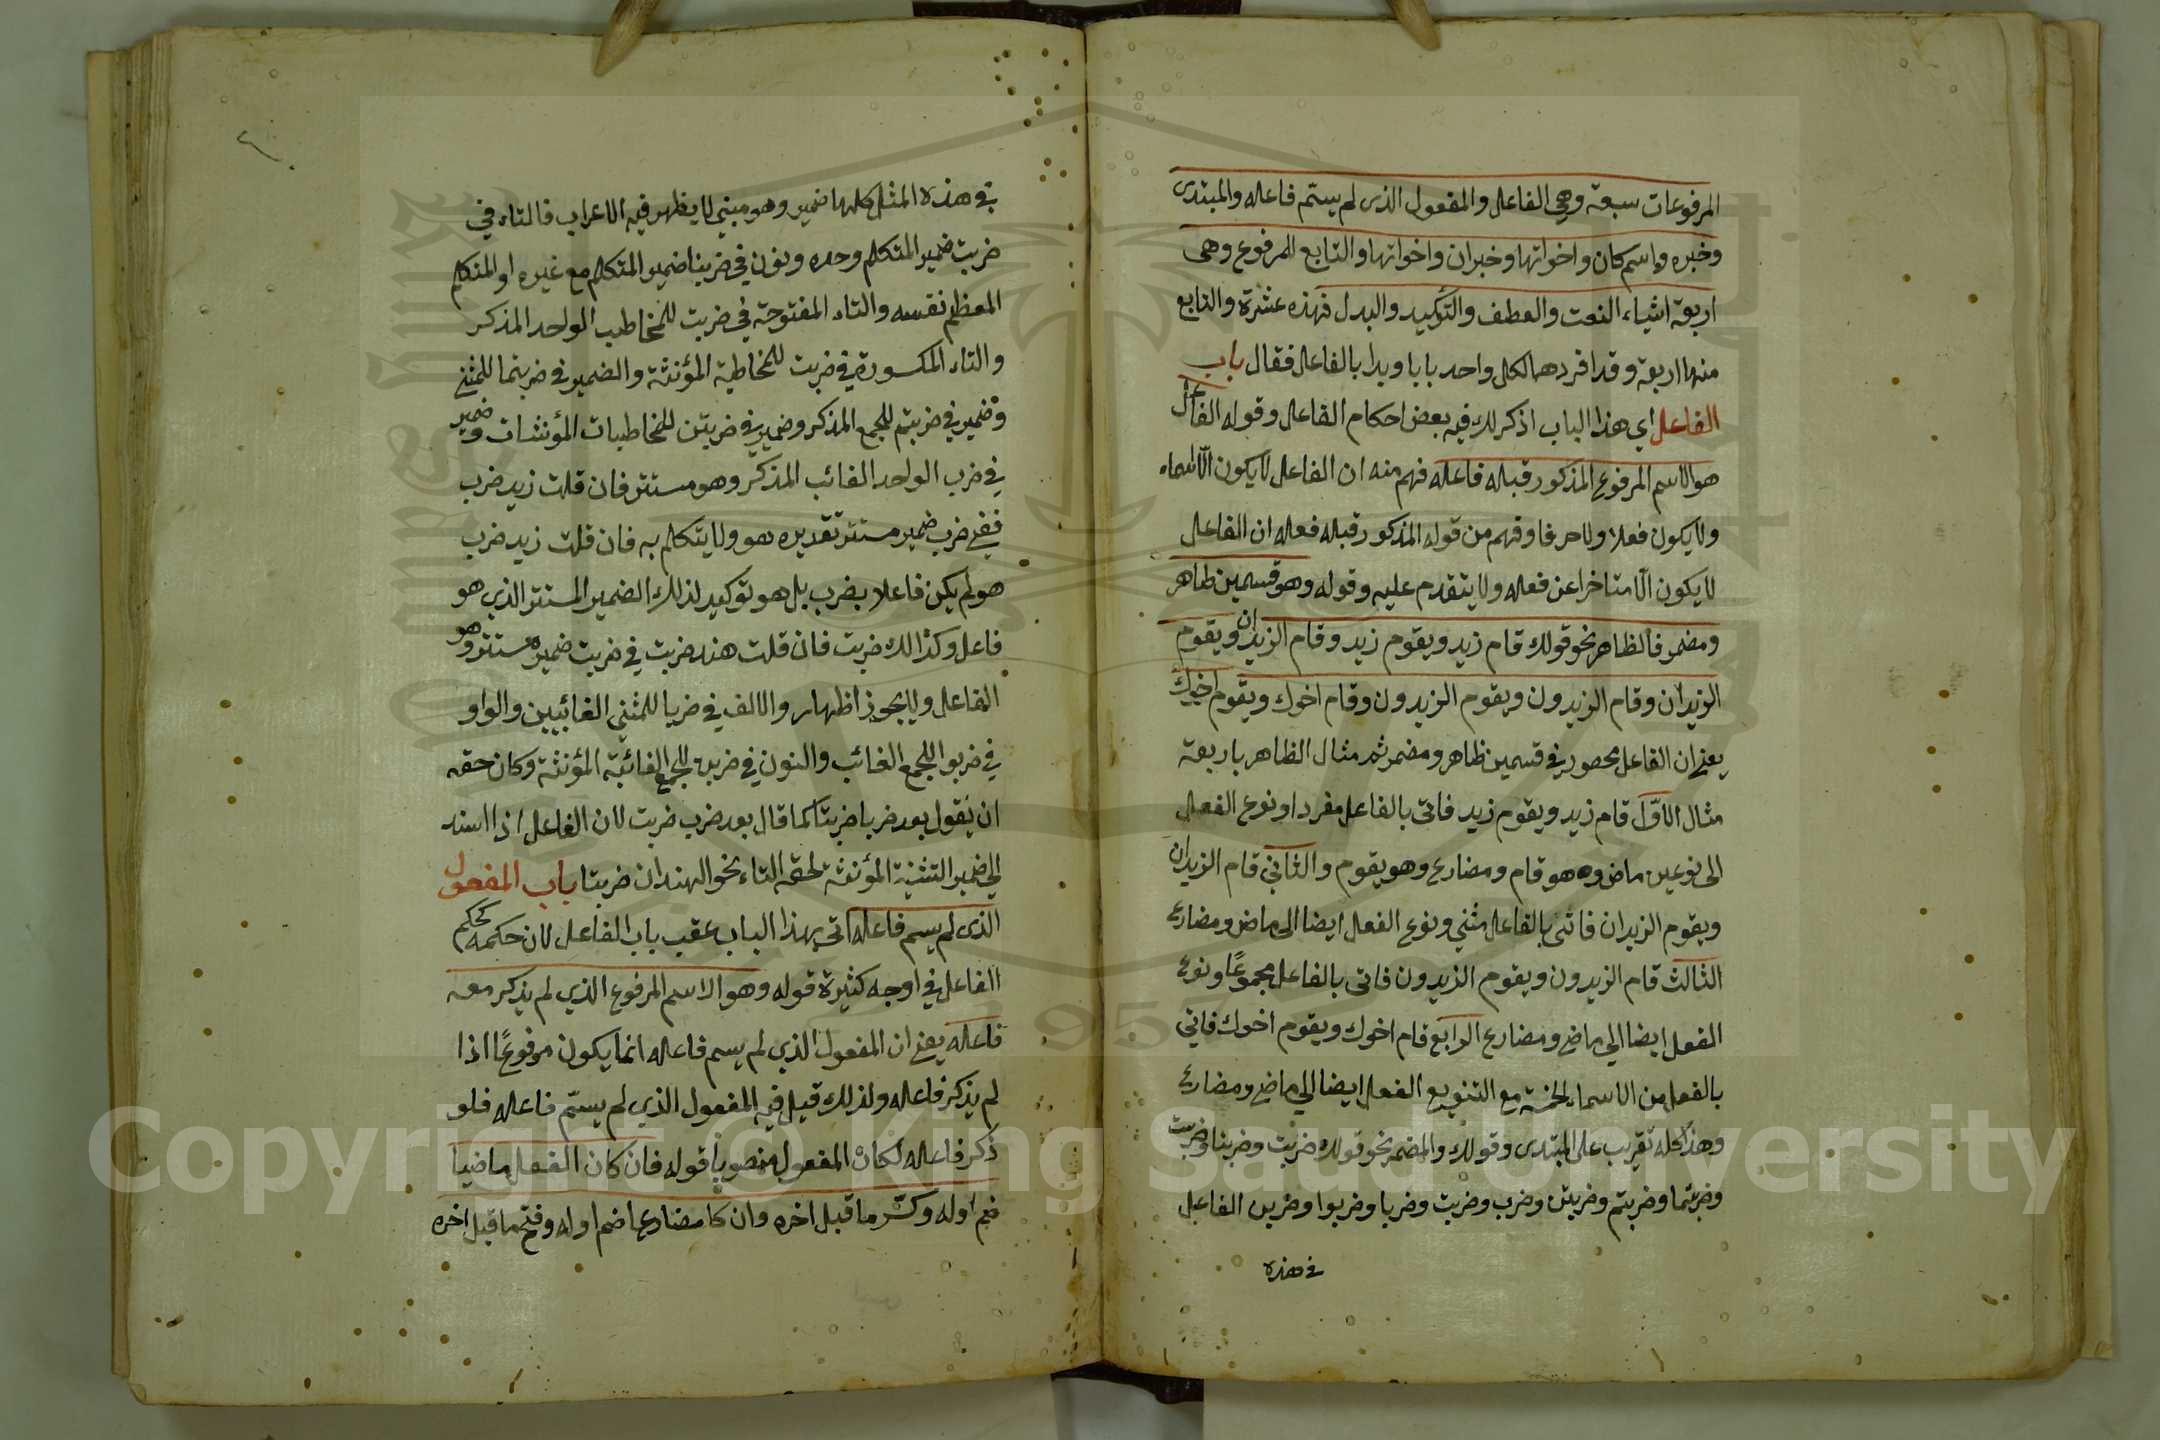 المرفوعات سبعة وهي الفاعل والمفعول الذى لم يستم فاعله والمبتدى
وخبره واسم كان واخواتها وخبر ان واخواتها والتابع المرفوع وهى
اربعة اشياء النعت والعطف والتوكيد والبدل فهذه عشرة والتابع
منها اربعة وقد افردهما لكل واحد بابا وبدا بالفاعل فقال باب
الفاعل اي هذا الباب اذكر لك فيه بعض احكام الفاعل وقوله الفاعل
هو الاسم المرفوع المذكور قبله فاعله فهم منه ان الفاعل لا يكون الّا اسماء
ولا يكون فعلا ولا حرفا وفهم من قوله المذكور قبله فعله ان الفاعل
لا يكون الّا متاخرا عن فعله ولا يتقدم عليه وقوله وهو قسمين ظاهر
ومضمر فالظاهر نحو قولك قام زيد ويقوم زيد وقام الزيدان ويقوم
الزيدان وقام الزيدون ويقوم الزيدون وقام اخوك ويقوم اخوك
يعني ان الفاعل محصور في قسمين ظاهر ومضمر ثم مثال الظاهر باربعة
مثال الاوّل قام زيد ويقوم زيد فاتى بالفاعل مفردا ونوع الفعل
الى نوعين ماض وه هو قام ومضارع وهو يقوم والثاني قام الزيدان
ويقوم الزيدان فاتى بالفاعل مثني ونوع الفعل ايضا الى ماض ومضارع
الثالث قام الزيدون ويقوم الزيدون فاتى بالفاعل مجموعًا ونوع
الفعل ايضا الي ماض ومضارع الرابع قام اخوك ويقوم اخوك فاتي
بالفعل من الاسماء الخمسة مع التنويع الفعل ايضا الي ماض ومضارع
وهذا كله تقريب على المبتدى وقولك والمضمر نحو قولك ضربت وضربنا وضربت
وضربتما وضربتم وضربتن وضرب وضربت وضربا وضربوا وضربن الفاعل
في هذه
في هذه المثل كلها ضمير وهو مبني لا يظهر فيه الاعراب فالتاء في
ضربت ضمير المتكلم وحده ونون في ضربنا ضمير المتكلم مع غيره او المتكلم
المعظم نفسه والتاء المفتوحة في ضربت للمخاطب الواحد المذكر
والتاء المكسورة في ضربت للمخاطبة المؤنثة والضمير في ضربتما للمثني
وضمير في ضربتم للجمع المذكر وضمير في ضربتن للمخاطبات المؤنثات وضمير
في ضرب الواحد الغائب المذكر وهو مستتر فان قلت زيد ضرب
ففي ضرب ضمير مستتر تقديره هو ولا يتكلم به فان قلت زيد ضرب
هو لم يكن فاعلا بضرب بل هو توكيد لذلك الضمير المستتر الذي هو
فاعل وكذالك ضربت فان قلت هند ضربت في ضربت ضمير مستتر وهو
الفاعل ولا يجوز اظهار والالف في ضربا للمثني الغائبين والواو
في ضربوا للجمع الغائب والنون في ضربن للجمع الغائبة المؤنثة وكان حقه
ان يقول بعد ضربا ضربتا كما قال بعد ضرب ضربت لان الفاعل اذا اسند
الي ضمير التثنية المؤنثة لحقه التاء نحو الهندان ضربتا باب المفعول
الذى لم يسم فاعله اتى بهذا الباب عقب باب الفاعل لان حكمه كحكم
الفاعل في اوجه كثيرة قوله وهو الاسم المرفوع الذي لم يذكر معه
فاعله يعني ان المفعول الذي لم يسم فاعله انما يكون مرفوعًا اذا
لم يذكر فاعله ولذلك قيل فيه المفعول الذي لم يسمّ فاعله فلو
ذكر فاعله لكان المفعول منصوبا قوله فان كان الفعل ماضيا
ضم اوله وكسّر ما قبل اخره وان كا مضارعا ضم اوله وفتح ما قبل اخره
Copyright © King Saud University
1957